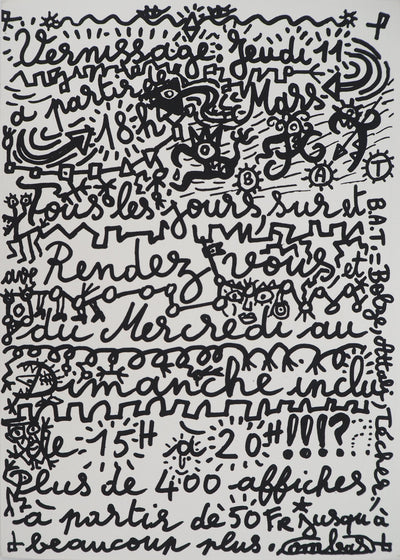 Vernissage: Jeudi 11
à partir Mars
18h
B A T
Tous les jours, sur et
Rendez vous, et
avec
du Mercredi au
Dimanche inclus
de 15H à 20H!!!?
Plus de 400 affiches,
à partir de 50 FR jusqu'à
beaucoup plus.
B.A.T. =